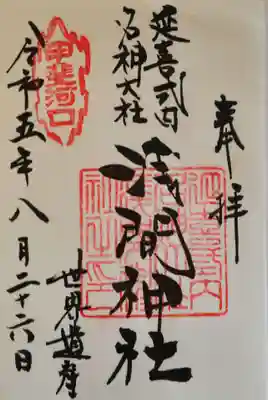 奉拝
延喜式内
名神大社
浅間神社
世界遺産
甲斐河口
令和五年八月二十六日